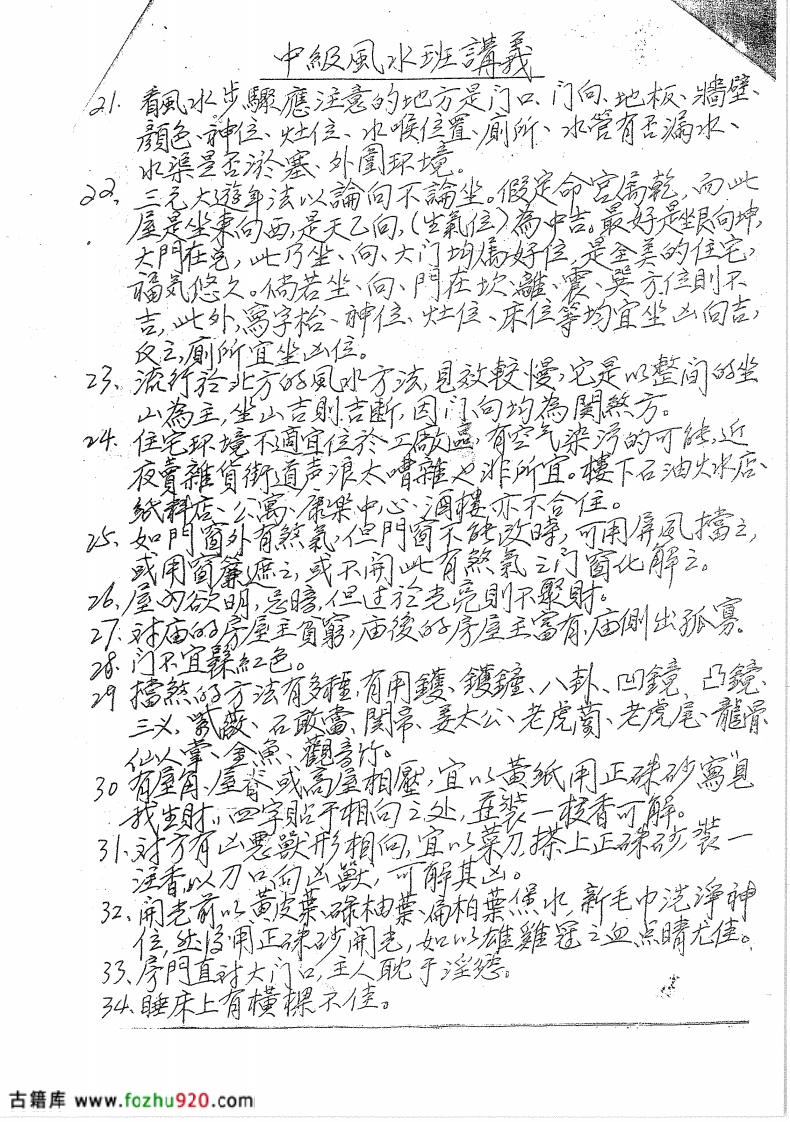 中級風水班講義
21. 看風水步驟應注意的地方是门口、门向、地板、牆壁、
顔色、神位、灶位、水喉位置、廁所、水管有否漏水、
水渠是否淤塞、外圍环境。
22. 三元大遊年法以論向不論坐。假定命宫属乾，而此
屋是坐東向西，是天乙向，(生氣位)為中吉。最好是坐艮向坤，
大門在兑，此乃坐、向、大门均属好位，是全美的住宅，
福気悠久。倘若坐、向、門在坎、離、震、巽方位則不
吉，此外，寫字枱、神位、灶位、床位等均宜坐凶向吉，
反之，廁所宜坐凶位。
23、流行於北方的風水方法，見效較慢，它是以整间的坐
山為主，坐山吉則吉断，因门、向均為開煞方。
24. 住宅环境不適宜位於工廠區，有空气染污的可能，近
夜賣雜貨街道声浪太嘈雜也非所宜。樓下石油火水店、
紙料店、公寓、康樂中心、酒樓亦不合住。
25、如門窗外有煞氣，但門窗不能改時，可用屏風擋之，
或用窗簾遮之，或不開此有煞氣之门窗化解之。
26、屋内欲明，忌暗，但过於光亮則不聚財。
27、对庙的房屋主貧窮，庙後的房屋主富有，庙側出孤寡。
28. 门不宜髹紅色。
29 擋煞的方法有多種，有用鑊、鑊鏟、八卦、凹鏡、凸鏡、
三叉、紫薇、石敢當、関帝、姜太公、老虎頭、老虎尾、龍骨
仙人掌、金魚、觀音竹。
30 有屋角、屋脊或高屋相壓，宜以黄紙用正硃砂寫"見
我生財"四字貼于相向之处，並裝一枝香可解。
31、对方有凶悪獸形相向，宜以菜刀，搽上正硃砂，裝一
注香，以刀口向凶獸，可解其凶。
32、開光前以黄皮葉、碌柚葉、扁柏葉煲水，新毛巾洗淨神
位，然後用正硃砂開光，如以雄雞冠之血点晴尤佳。
33、房門直对大门口，主人耽于淫慾。
34、睡床上有橫樑不佳。
古籍库 www.fozhu920.com